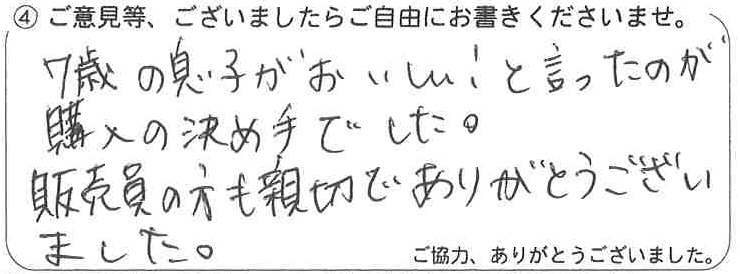 ④ ご意見等、ございましたらご自由にお書きくださいませ。
7歳の息子がおいしい！と言ったのが
購入の決め手でした。
販売員の方も親切でありがとうござい
ました。
ご協力、ありがとうございました。